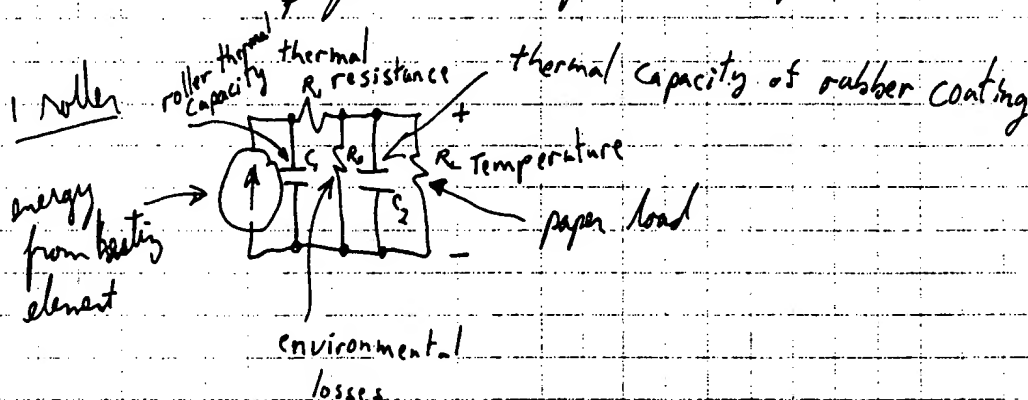 1 roller
roller thermal
capacity
thermal
resistance
R₁
thermal capacity of rubber coating
+
C₁
R₀
C₂
R_L
Temperature
energy
from heating
element
paper load
-
environmental
losses